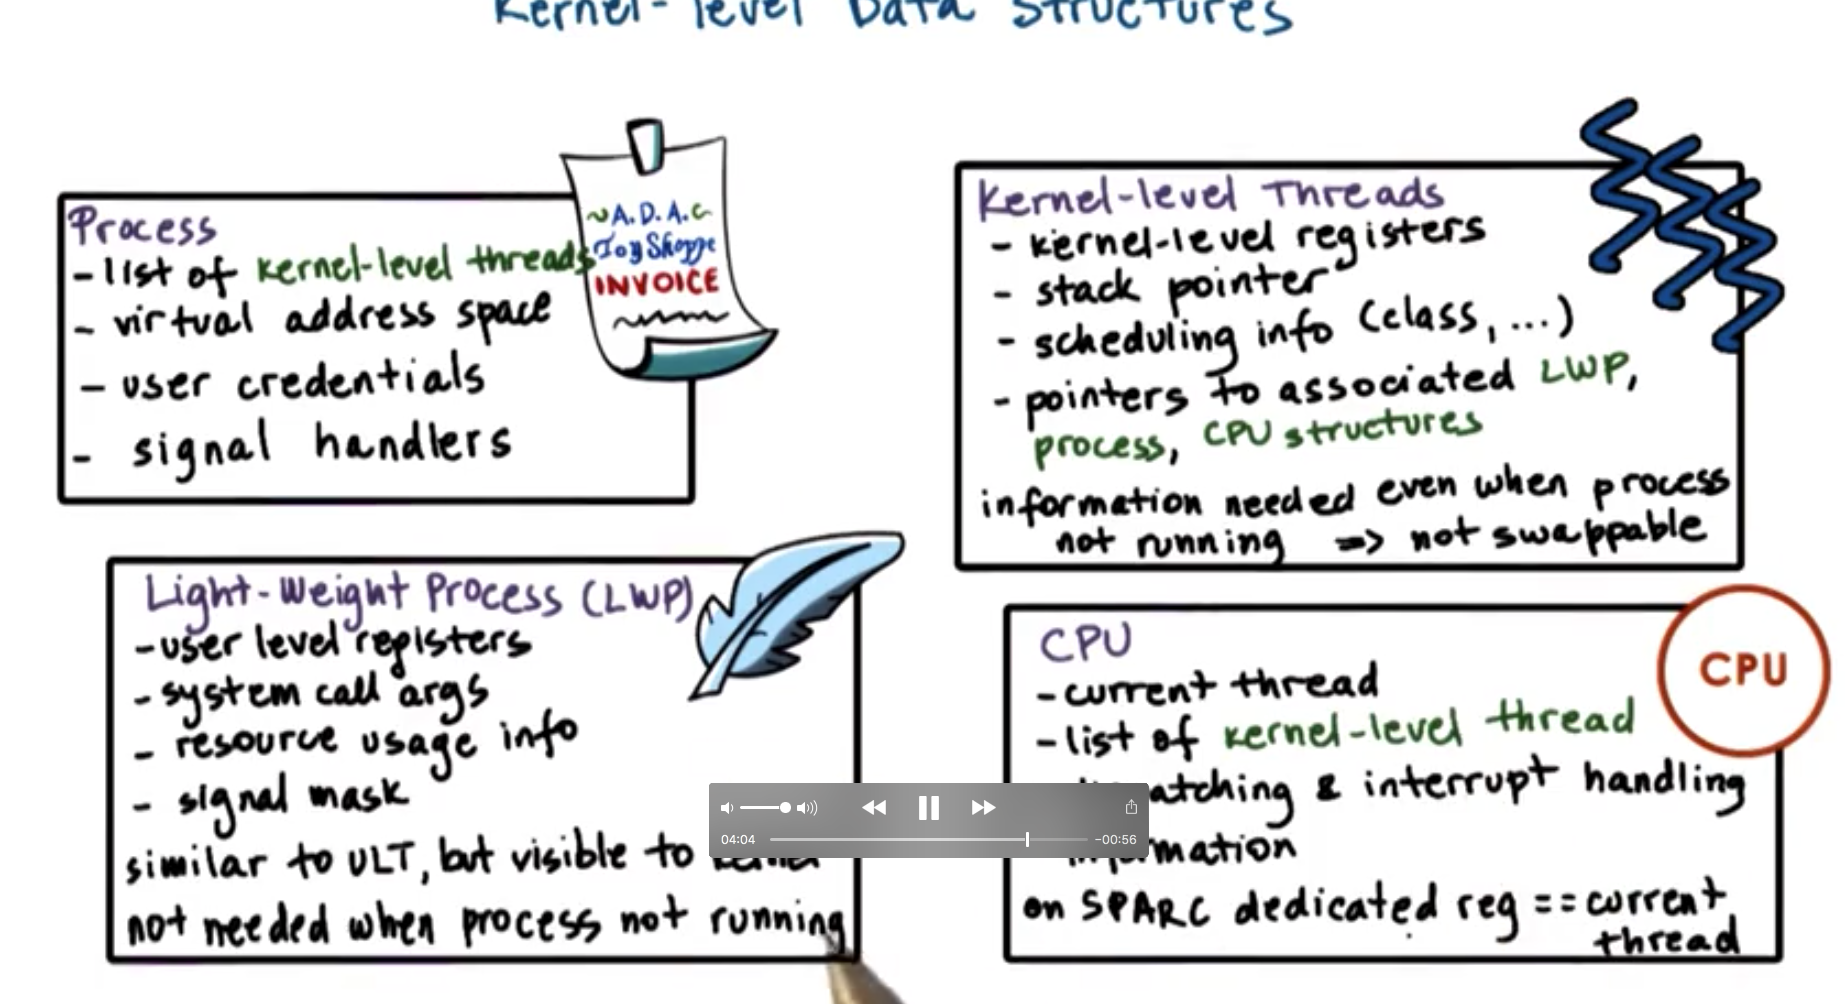 Kernel-level Data Structures
Process
- list of kernel-level threads
- virtual address space
- user credentials
- signal handlers
~A.D.A.C~
Toy Shoppe
INVOICE
Kernel-level Threads
- kernel-level registers
- stack pointer
- scheduling info (class, ...)
- pointers to associated LWP,
process, CPU structures
information needed even when process
not running => not swappable
Light-Weight Process (LWP)
- user level registers
- system call args
- resource usage info
- signal mask
similar to ULT, but visible to kernel
not needed when process not running
CPU
CPU
- current thread
- list of kernel-level thread
& interrupt handling
information
on SPARC dedicated reg == current
thread
04:04
-00:56